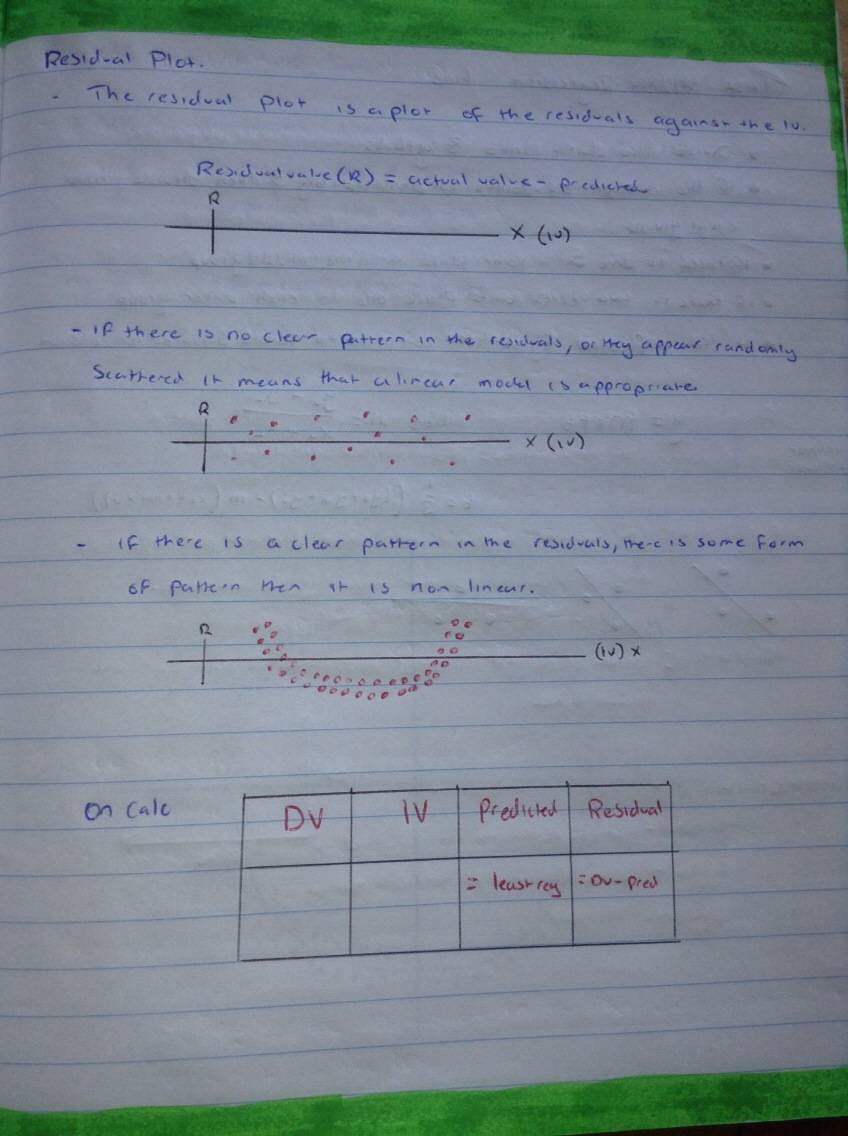 Residual Plot.
- The residual plot is a plot of the residuals against the IV.
Residual value (R) = actual value - predicted
R
X (IV)
- if there is no clear pattern in the residuals, or they appear randomly
Scattered it means that a linear model is appropriate
R
X (IV)
- if there is a clear pattern in the residuals, there is some form
of pattern then it is non linear.
R
(IV) X
On Calc
DV IV Predicted Residual
= least reg = DV - Pred